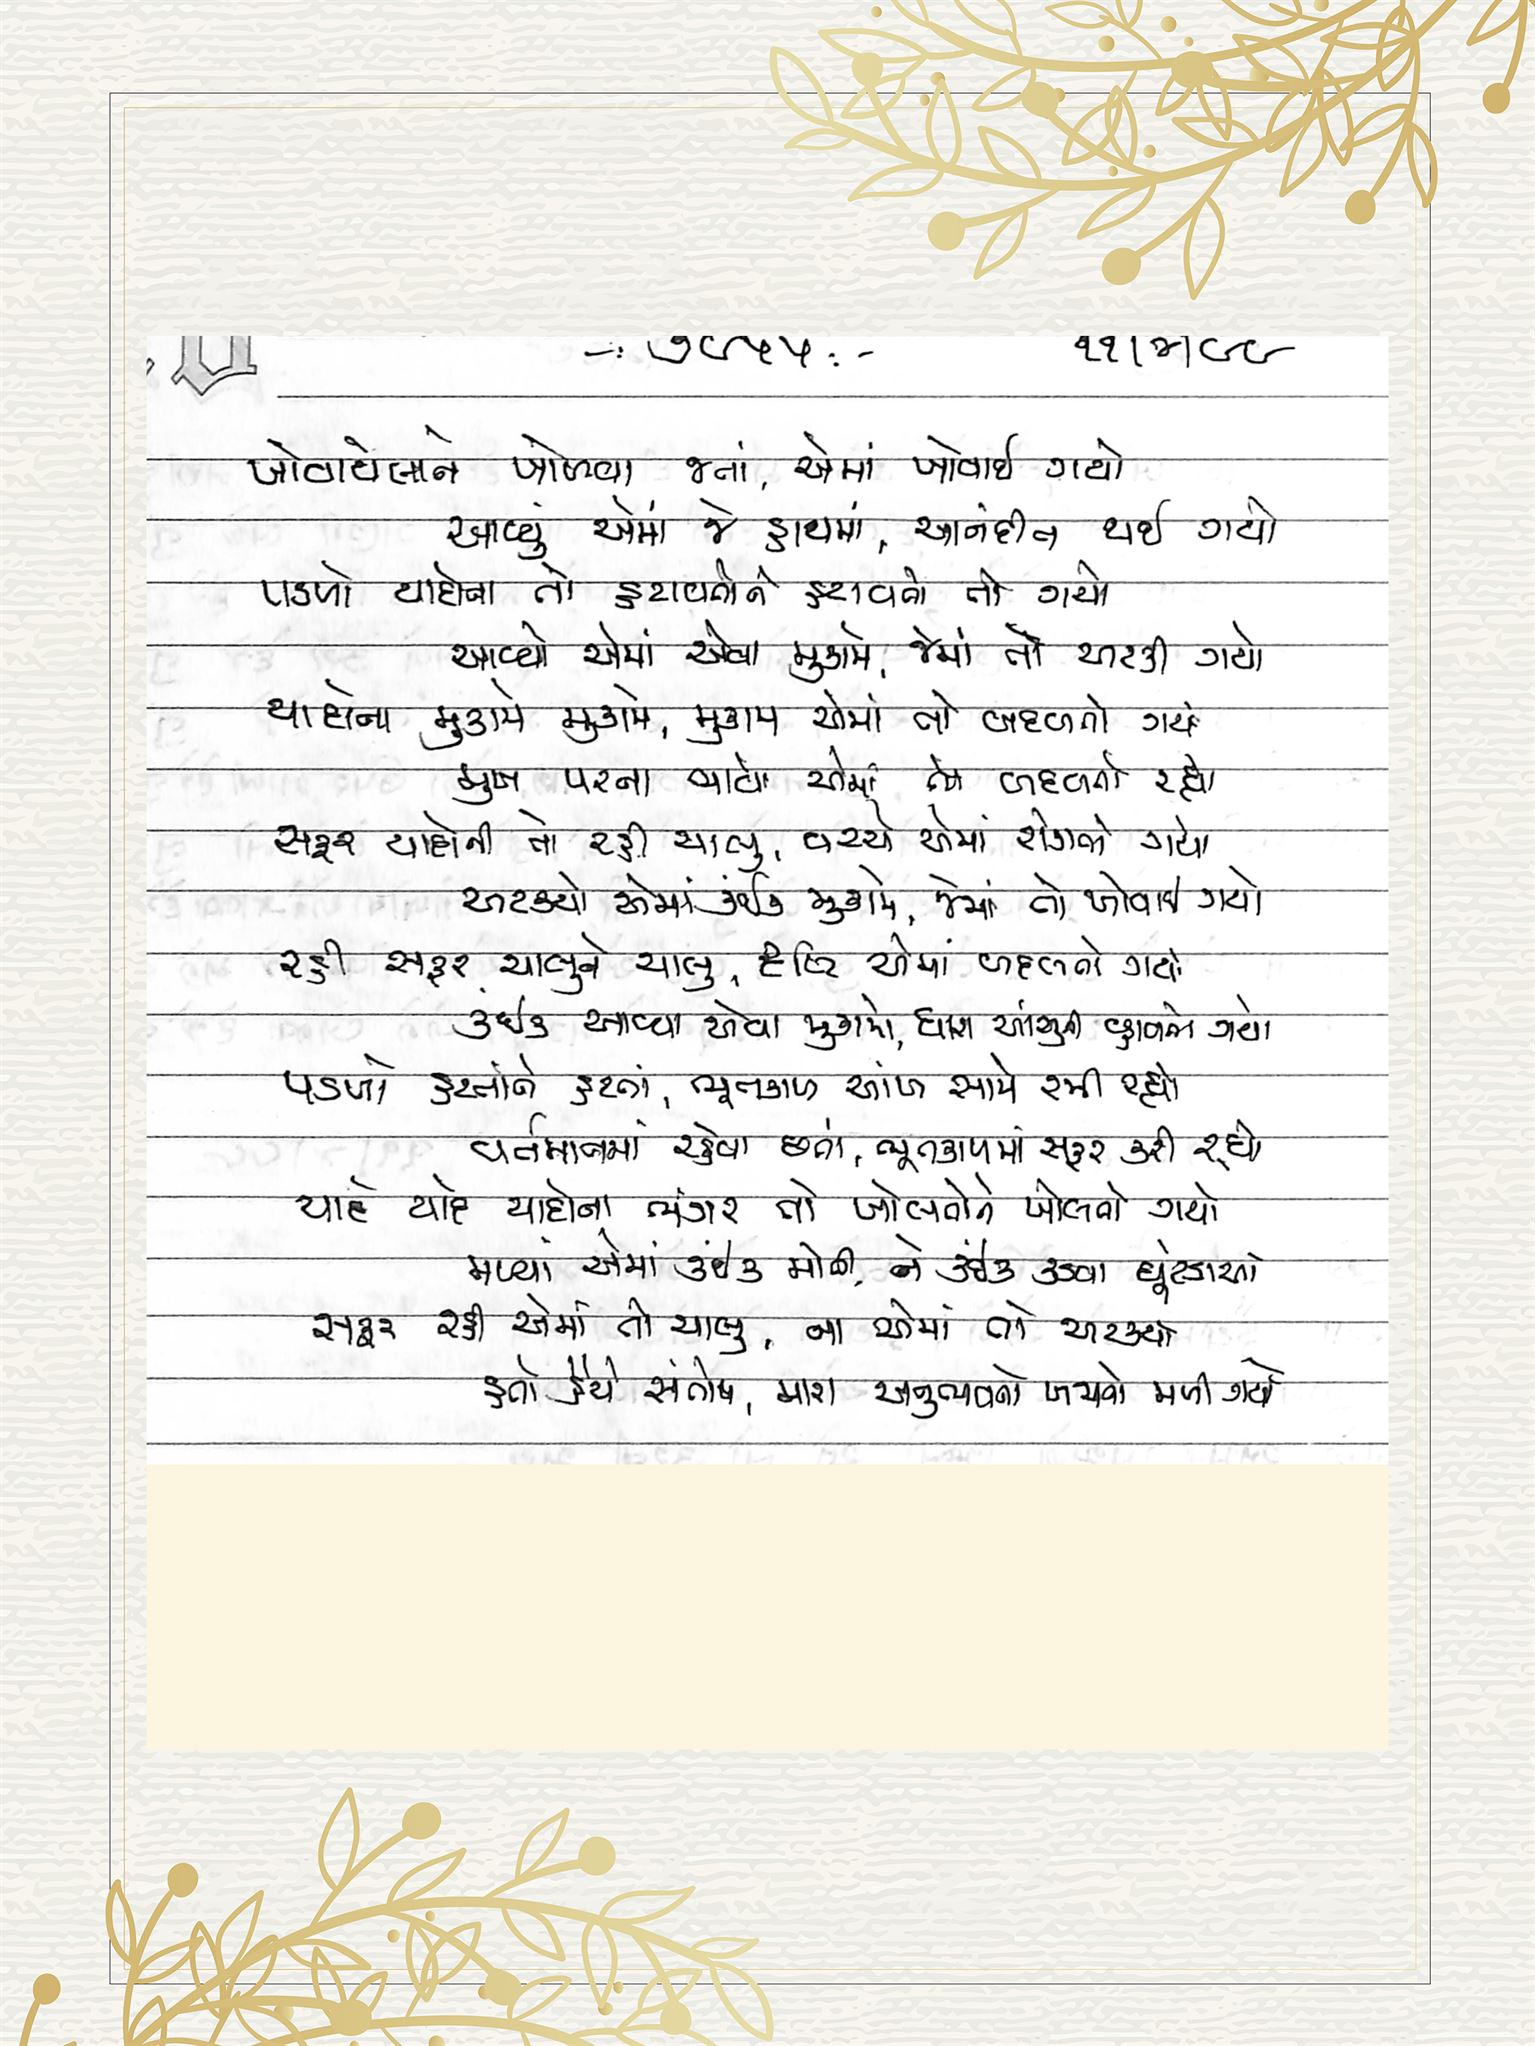 -: ૭૯૫૫ :- ૧૧/૪/૯૯
ખોવાયેલાને ખોળવા જતાં, એમાં ખોવાઈ ગયો
આવ્યું એમાં જે હાથમાં, આનંદીત થઈ ગયો
પડળો યાદોના તો હટાવતોને હટાવતો તો ગયો
આવ્યો એમાં એવા મુકામે, જેમાં તો અટકી ગયો
યાદોના મુકામે મુકામે, મુકામ એમાં તો બદલતો ગયો
મુખ પરના ભાવો એમાં તો બદલતો રહ્યો
સફર યાદોની તો રહી ચાલુ, વચ્ચે એમાં રોકાતો ગયો
અટક્યો એમાં કંઈક મુકામે, જેમાં તો ખોવાઈ ગયો
રહી સફર ચાલુને ચાલુ, દૃષ્ટિ એમાં બદલતો ગયો
કંઈક આવ્યા એવા મુકામો, ધારા આંસુની વહાવતો ગયો
પડળો હટતાંને હટતાં, ભૂતકાળ આંખ સામે રમી રહ્યો
વર્તમાનમાં રહેવા છતાં, ભૂતકાળમાં સફર કરી રહ્યો
યાદે યાદે યાદોના ભંડાર તો ખોલતોને ખોલતો ગયો
મળ્યાં એમાં કંઈક મોતી, ને કંઈક કડવા ઘૂંટડાઓ
સફર રહી એમાં તો ચાલુ, ના એમાં તો અટક્યો
હતો હૈયે સંતોષ, મારા અનુભવનો ખજાનો મળી ગયો